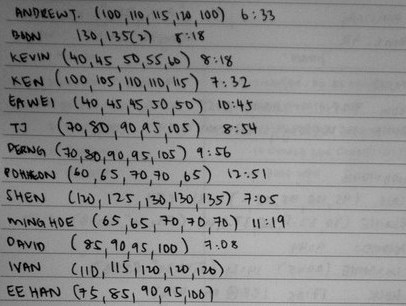 ANDREW T. (100, 110, 115, 120, 100) 6:33
130, 135(2) 8:18
KEVIN (40, 45, 50, 55, 60) 8:18
KEN (100, 105, 110, 110, 115) 7:32
EAWEI (40, 45, 45, 50, 50) 10:45
TJ (70, 80, 90, 95, 105) 8:54
PERNG (70, 80, 90, 95, 105) 9:56
(60, 65, 70, 70, 65) 12:51
SHEN (120, 125, 130, 130, 135) 7:05
MING HOE (65, 65, 70, 70, 70) 11:19
DAVID (85, 90, 95, 100) 7:08
IVAN (110, 115, 120, 120, 120)
EE HAN (75, 85, 90, 95, 100)